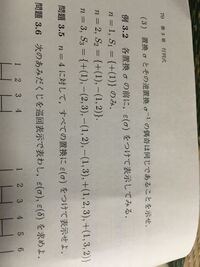 70 第3章 行列式
(3) 置換 σ とその逆置換 σ⁻¹ の偶奇は同じであることを示せ.
例 3.2 各置換 σ の前に, ε(σ) をつけて表示してみる.
n = 1, S₁ = {+(1)} のみ.
n = 2, S₂ = {+(1), −(1, 2)}.
n = 3, S₃ = {+(1), −(2, 3), −(1, 2), −(1, 3), +(1, 2, 3), +(1, 3, 2)}
問題 3.5 n = 4 に対して, すべての置換に ε(σ) をつけて表示せよ.
問題 3.6 次のあみだくじを巡回表示で表わし, ε(σ), ε(δ) を求めよ.
1 2 3 4 1 2 3 4 5 6